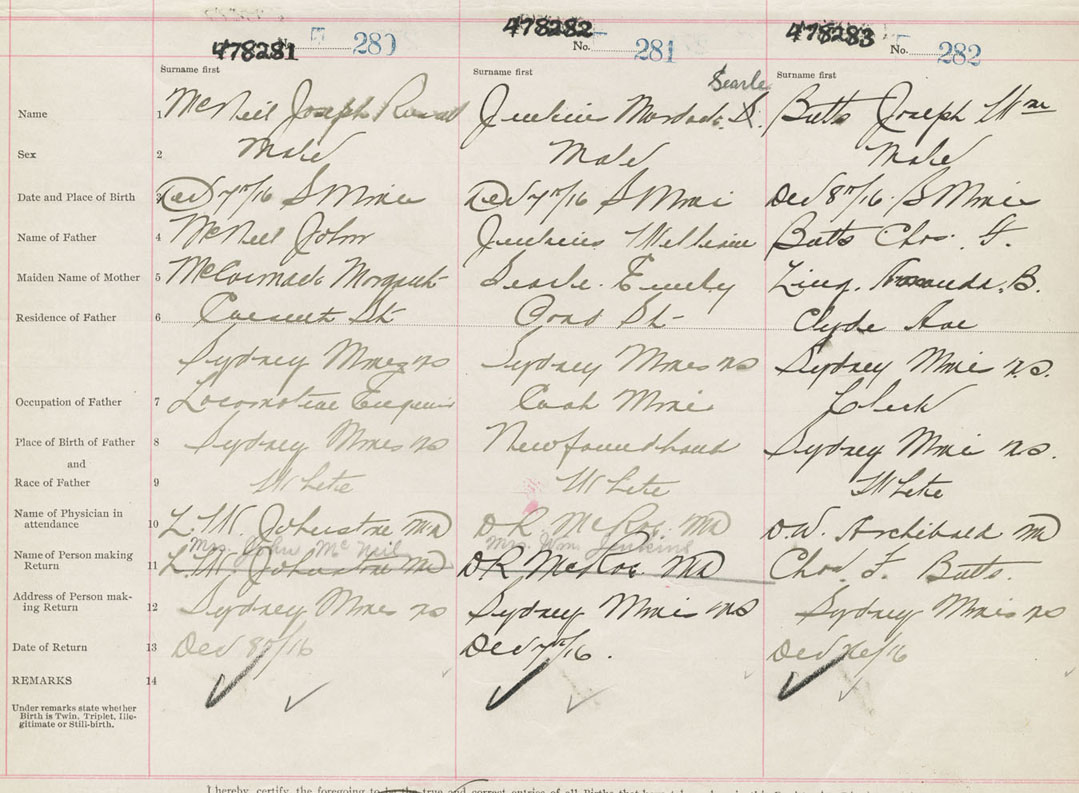 478281 280 478282 No. 281 478283 No. 282
Surname first Surname first Searle Surname first
Name 1 McNeil Joseph Jenkins Murdock S. Butts Joseph Wm
Sex 2 Male Male Male
Date and Place of Birth 3 Dec 7th/16 S Mines Dec 7th/16 S Mines Dec 8th/16 S Mines
Name of Father 4 McNeil John Jenkins William Butts Chas. F.
Maiden Name of Mother 5 McCormack Margaret Searle Emily B.
Residence of Father 6 St St Clyde Ave
Sydney Mines NS Sydney Mines NS Sydney Mines NS.
Occupation of Father 7 Locomotive Engineer Mine Clerk
Place of Birth of Father 8 Sydney Mines NS Newfoundland Sydney Mines NS.
and
Race of Father 9 White White White
Name of Physician in attendance 10 L.W. Johnstone MD DR McRae. MD D.W. Archibald MD
Mrs. John McNeil Mrs. Wm. Jenkins
Name of Person making Return 11 L.W. Johnstone MD DR McRae MD Chas. F. Butts.
Address of Person making Return 12 Sydney Mines NS Sydney Mines NS Sydney Mines NS
Date of Return 13 Dec 8th/16 Dec 7th/16. Dec /16
REMARKS 14
Under remarks state whether
Birth is Twin, Triplet, Ille-
gitimate or Still-birth.
I hereby, certify the foregoing to be the true and correct entries of all Births that have